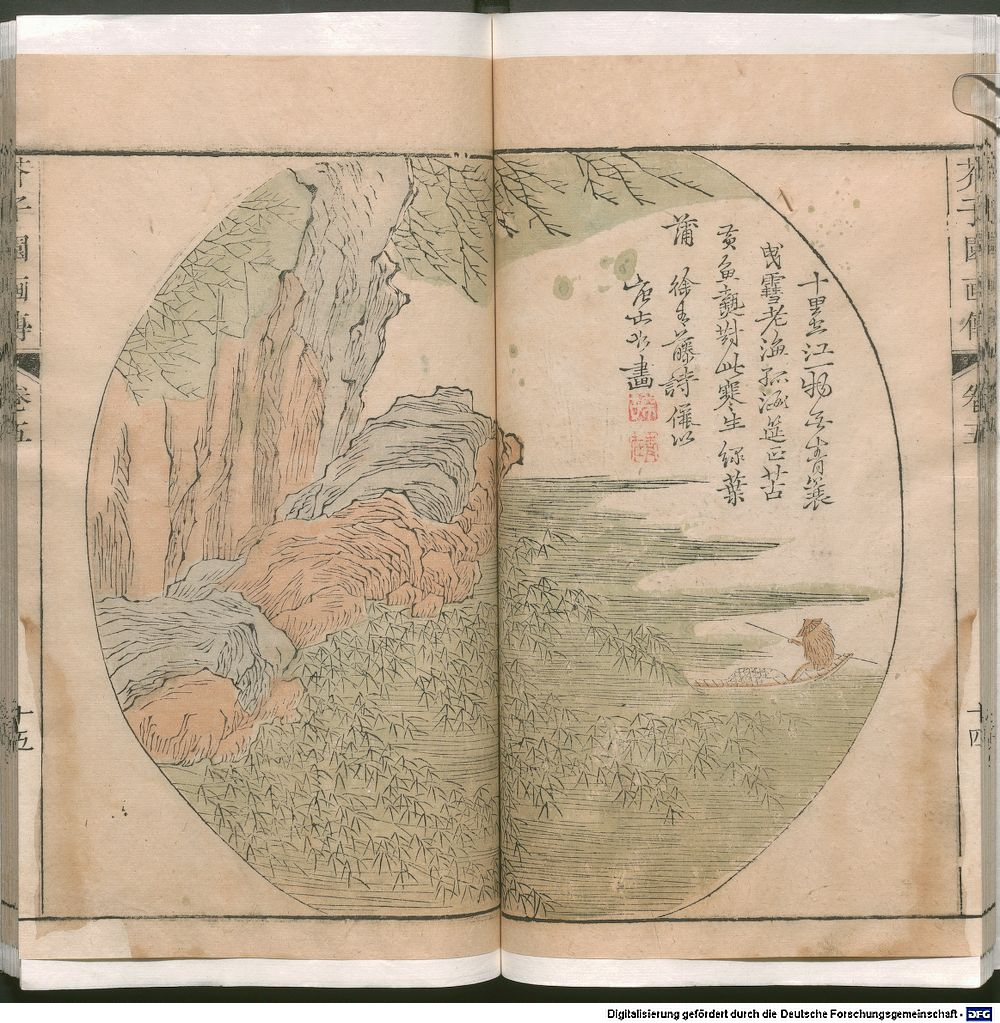 芥子園画傳
卷五
十四
十里空江一物无青簑
曳雪老漁孤 筵正苦
黃魚熱對此寒生綠葉
蒲 徐青藤詩 以
畫
芥子園画傳
卷五
十五
Digitalisierung gefördert durch die Deutsche Forschungsgemeinschaft - DFG